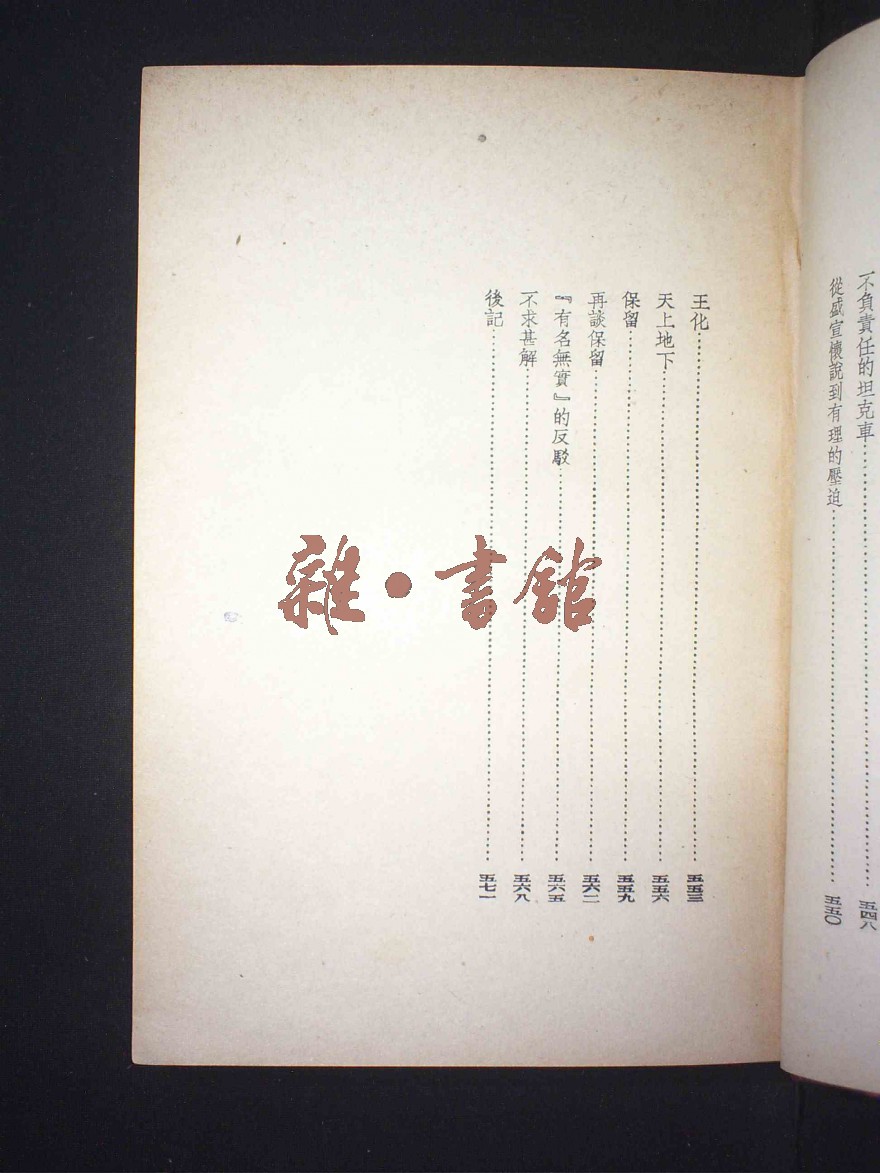 不負責任的坦克車……五四八
從盛宣懷說到有理的壓迫……五五〇
王化……五五三
天上地下……五五六
保留……五五九
再談保留……五六二
『有名無實』的反駁……五六五
不求甚解……五六八
後記……五七一
雜·書館